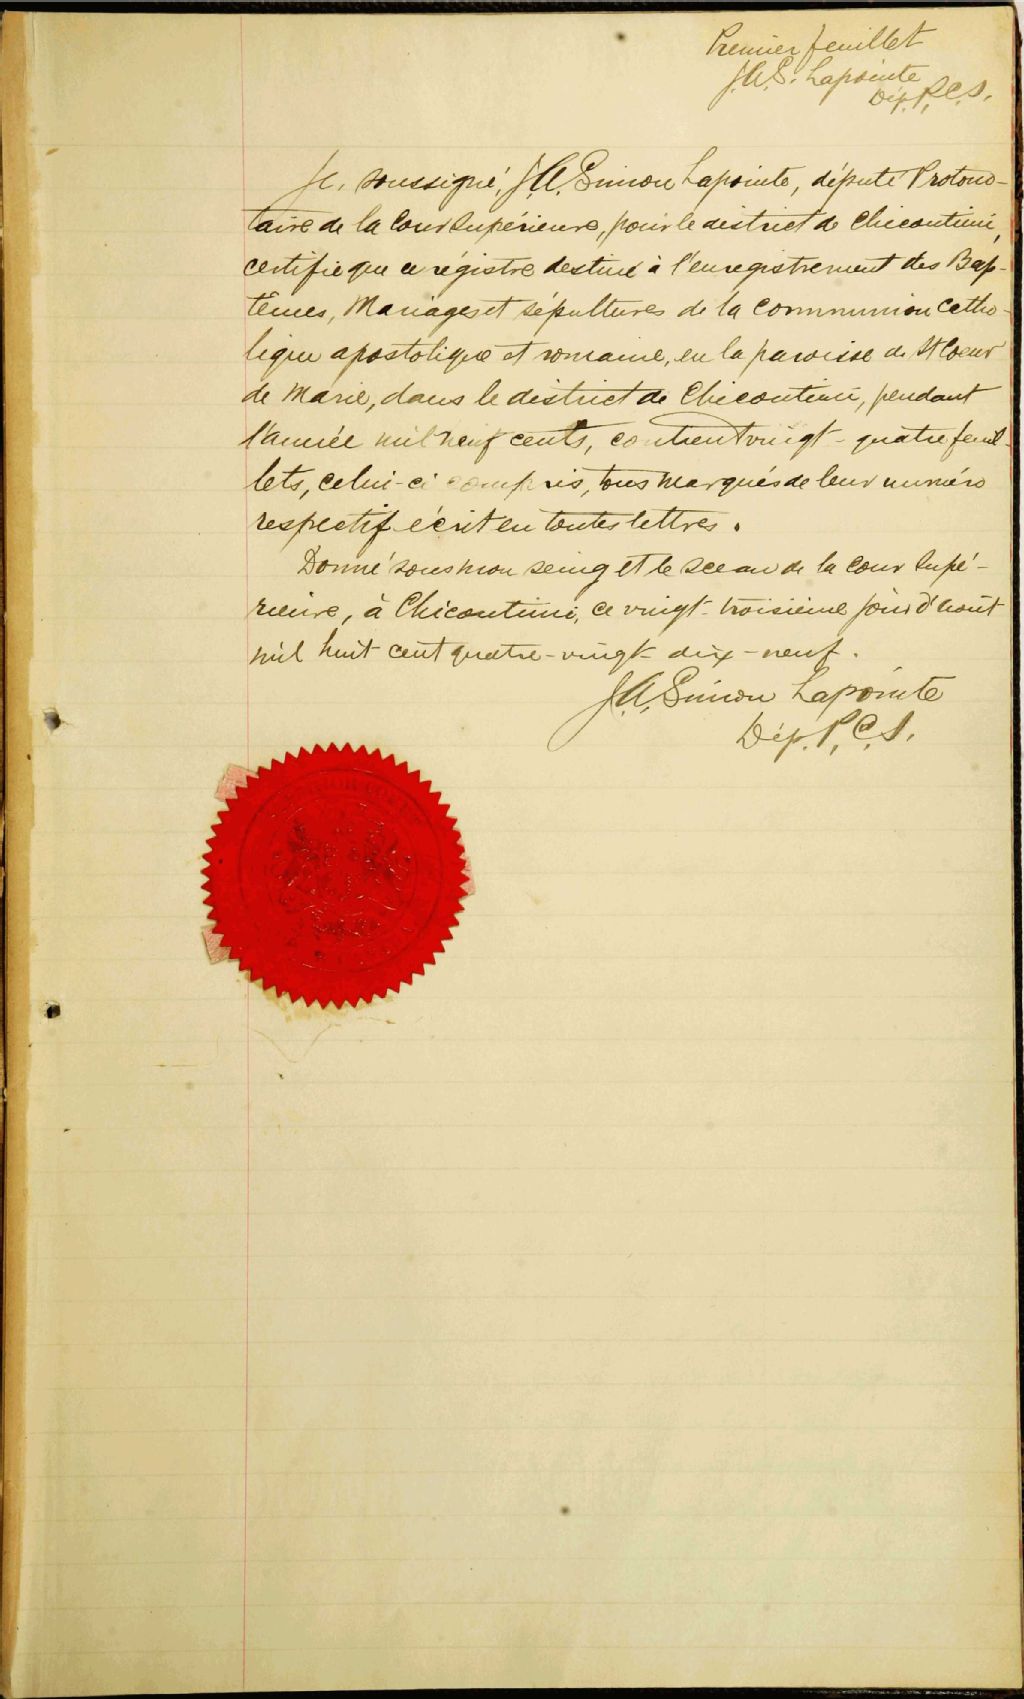 Premier feuillet
J.A.S. Lapointe
Dép. P.C.S.
Je, soussigné, J.A. Simon Lapointe, député Protono-
taire de la Cour Supérieure, pour le district de Chicoutimi,
certifie que ce régistre destiné à l'enregistrement des Bap-
têmes, Mariages et sépultures de la Communion Catho-
lique apostolique et romaine, en la paroisse de St Coeur
de Marie, dans le district de Chicoutimi, pendant
l'année mil neuf cents, contient vingt-quatre feuil-
lets, celui-ci compris, tous marqués de leur numéro
respectif écrit en toutes lettres.
Donné sous mon seing et le sceau de la Cour Supé-
rieure, à Chicoutimi, ce vingt-troisième jour d'août
mil huit cent quatre-vingt-dix-neuf.
J.A. Simon Lapointe
Dép. P.C.S.